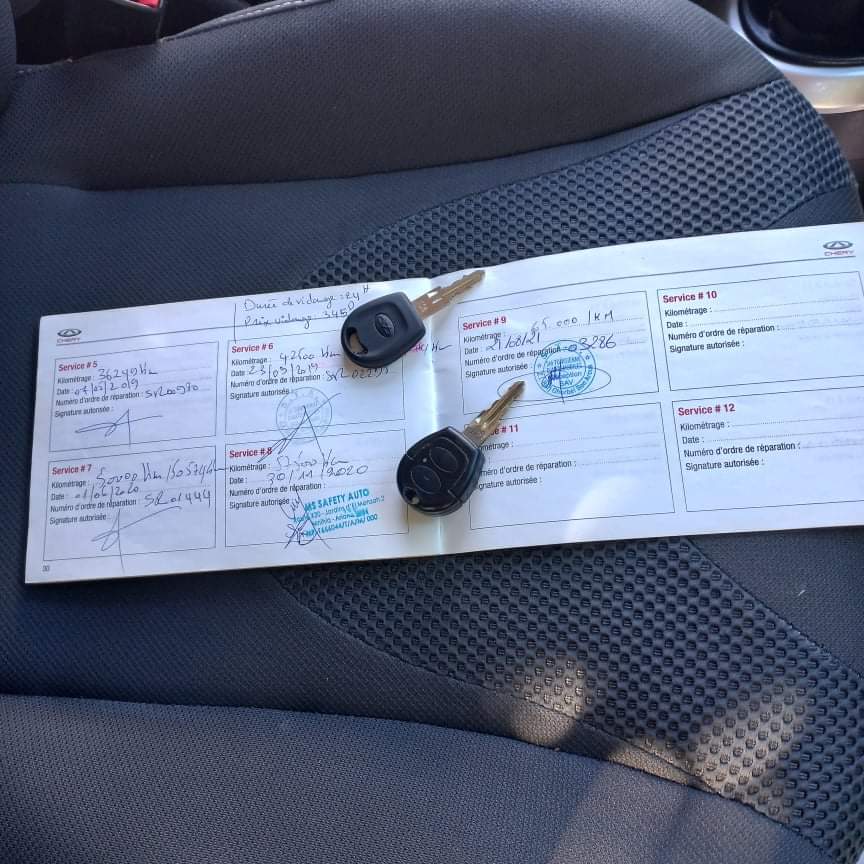 CHERY
Durée de vidange : 24H
Prix vidange : 345D
Service # 5
Kilométrage : 36249 Km
Date : 07/05/2019
Numéro d'ordre de réparation : SR00970
Signature autorisée :
Service # 6
Kilométrage : 42500 Km
Date : 23/09/2019
Numéro d'ordre de réparation :
Signature autorisée :
Service # 7
Kilométrage : 50000 Km/50574Km
Date : 01/06/2020
Numéro d'ordre de réparation : SR01444
Signature autorisée :
Service # 8
Kilométrage : 57500 Km
Date : 30/11/2020
Numéro d'ordre de réparation :
Signature autorisée :
MS SAFETY AUTO
30
CHERY
Service # 9
Kilométrage : 65.000 /KM
Date : 21/08/21
Numéro d'ordre de réparation : 03286
Signature autorisée :
SAV
Service # 10
Kilométrage :
Date :
Numéro d'ordre de réparation :
Signature autorisée :
# 11
Numéro d'ordre de réparation :
Signature autorisée :
Service # 12
Kilométrage :
Date :
Numéro d'ordre de réparation :
Signature autorisée :